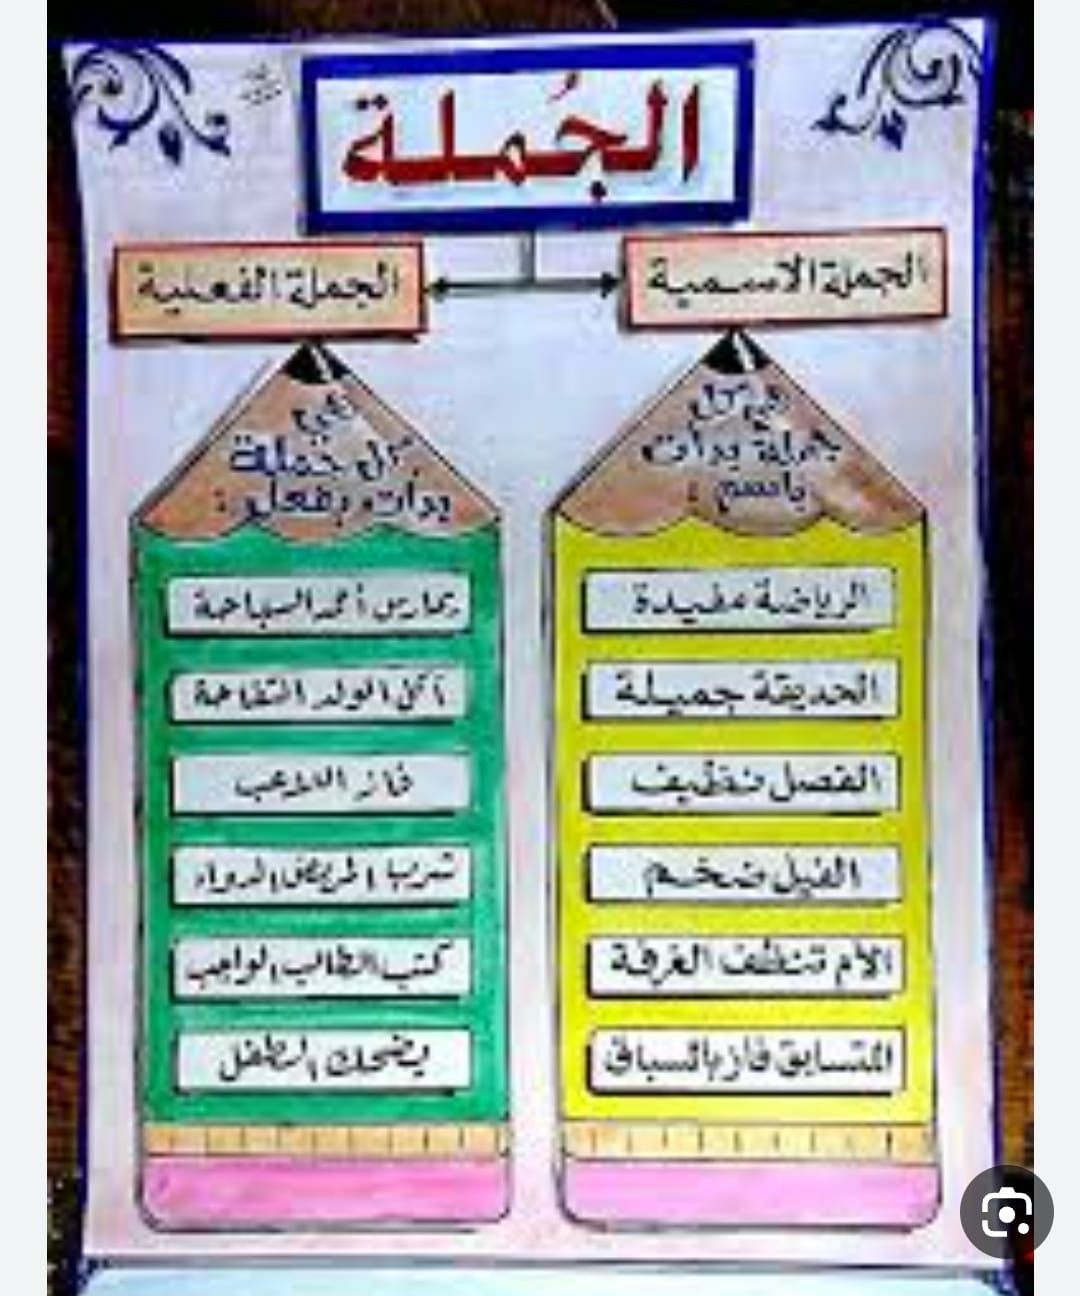 الجُملة
الجملة الاسمية
الجملة الفعلية
هي كل
جملة بدأت
باسم :
هي
كل جملة
بدأت بفعل :
الرياضة مفيدة
الحديقة جميلة
الفصل نظيف
الفيل ضخم
الأم تنظف الغرفة
المتسابق فاز بالسباق
يمارس أحمد السباحة
أكل الولد التفاحة
فاز اللاعب
شرب المريض الدواء
كتب الطالب الواجب
يضحك الطفل